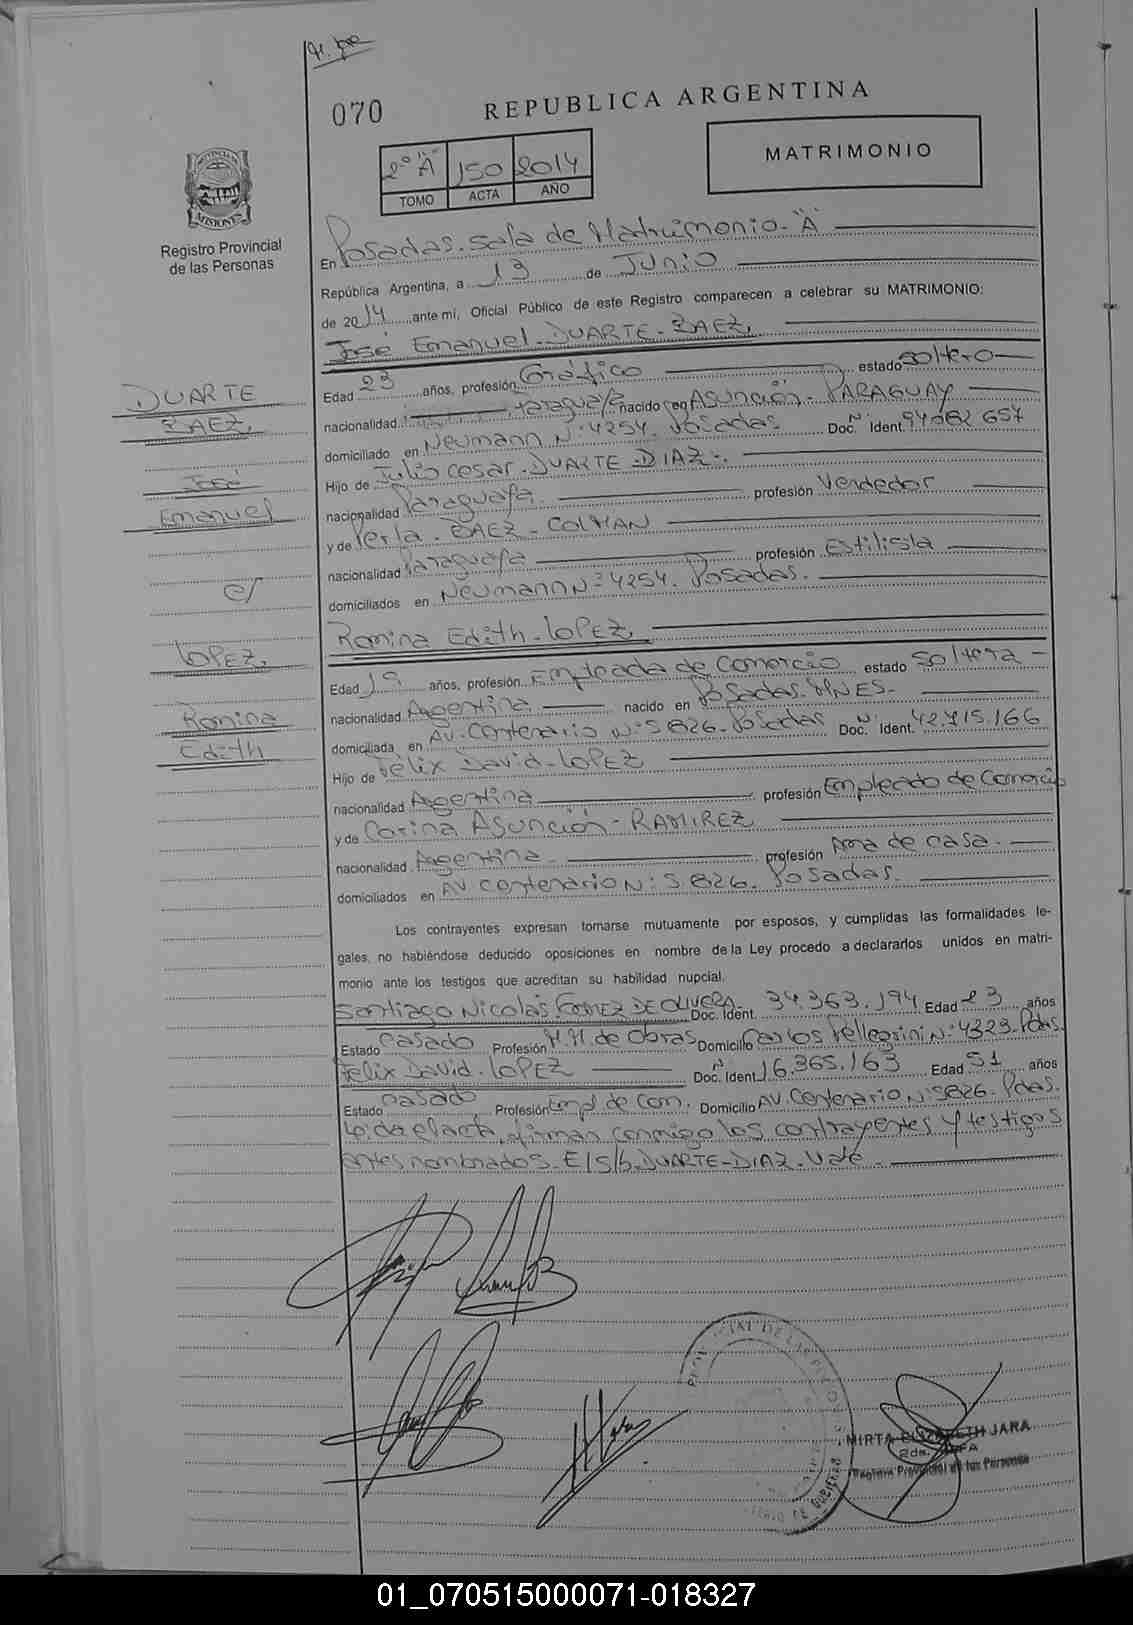 070
REPUBLICA ARGENTINA
2º "A" 150 2014
TOMO ACTA AÑO
MATRIMONIO
PROVINCIA DE
MISIONES
Registro Provincial
de las Personas
En Posadas. Sala de Matrimonio- "A"
República Argentina, a 13 de Junio
de 2014 ante mí, Oficial Público de este Registro comparecen a celebrar su MATRIMONIO:
José Emanuel. DUARTE- BAEZ,
Edad 23 años, profesión Gráfico estado soltero
nacionalidad Paraguaya nacido en Asunción- PARAGUAY
domiciliado en Neumann Nº 4254. Posadas Doc. Ident. 94082657
Hijo de Julio Cesar. DUARTE DIAZ.
nacionalidad Paraguaya profesión Vendedor
y de Perla. BAEZ- COLMAN
nacionalidad Paraguaya profesión Estilista
domiciliados en Neumann Nº 4254. Posadas.
Romina Edith- LOPEZ,
Edad 19 años, profesión Empleada de Comercio estado Soltera
nacionalidad Argentina nacido en Posadas. MNES.
domiciliada en AV. Centenario Nº 5826- Posadas Doc. Ident. 42.715.166
Hijo de Félix David- LOPEZ
nacionalidad Argentina profesión Empleado de Comercio
y de Carina Asunción- RAMIREZ
nacionalidad Argentina profesión Ama de casa.
domiciliados en AV Centenario Nº 5826. Posadas.
Los contrayentes expresan tomarse mutuamente por esposos, y cumplidas las formalidades le-
gales, no habiéndose deducido oposiciones en nombre de la Ley procedo a declararlos unidos en matri-
monio ante los testigos que acreditan su habilidad nupcial.
Santiago Nicolás GOMEZ DE OLIVERA. Doc. Ident. 34.363.194 Edad 23 años
Estado Casado Profesión M.M. de Obras Domicilio Carlos Pellegrini Nº 4329. Pdas.
Félix David- LOPEZ Doc. Ident. 16.365.163 Edad 51 años
Estado Casado Profesión Empl de Com. Domicilio AV. Centenario Nº 5826- Pdas.
Leída el acta, firman conmigo los contrayentes y testigos
antes nombrados. E/S/b. DUARTE-DIAZ. Vale
DUARTE
BAEZ,
José
Emanuel
c/
LOPEZ,
Romina
Edith
MIRTA ELIZABETH JARA
Registro Provincial de las Personas
01_070515000071-018327